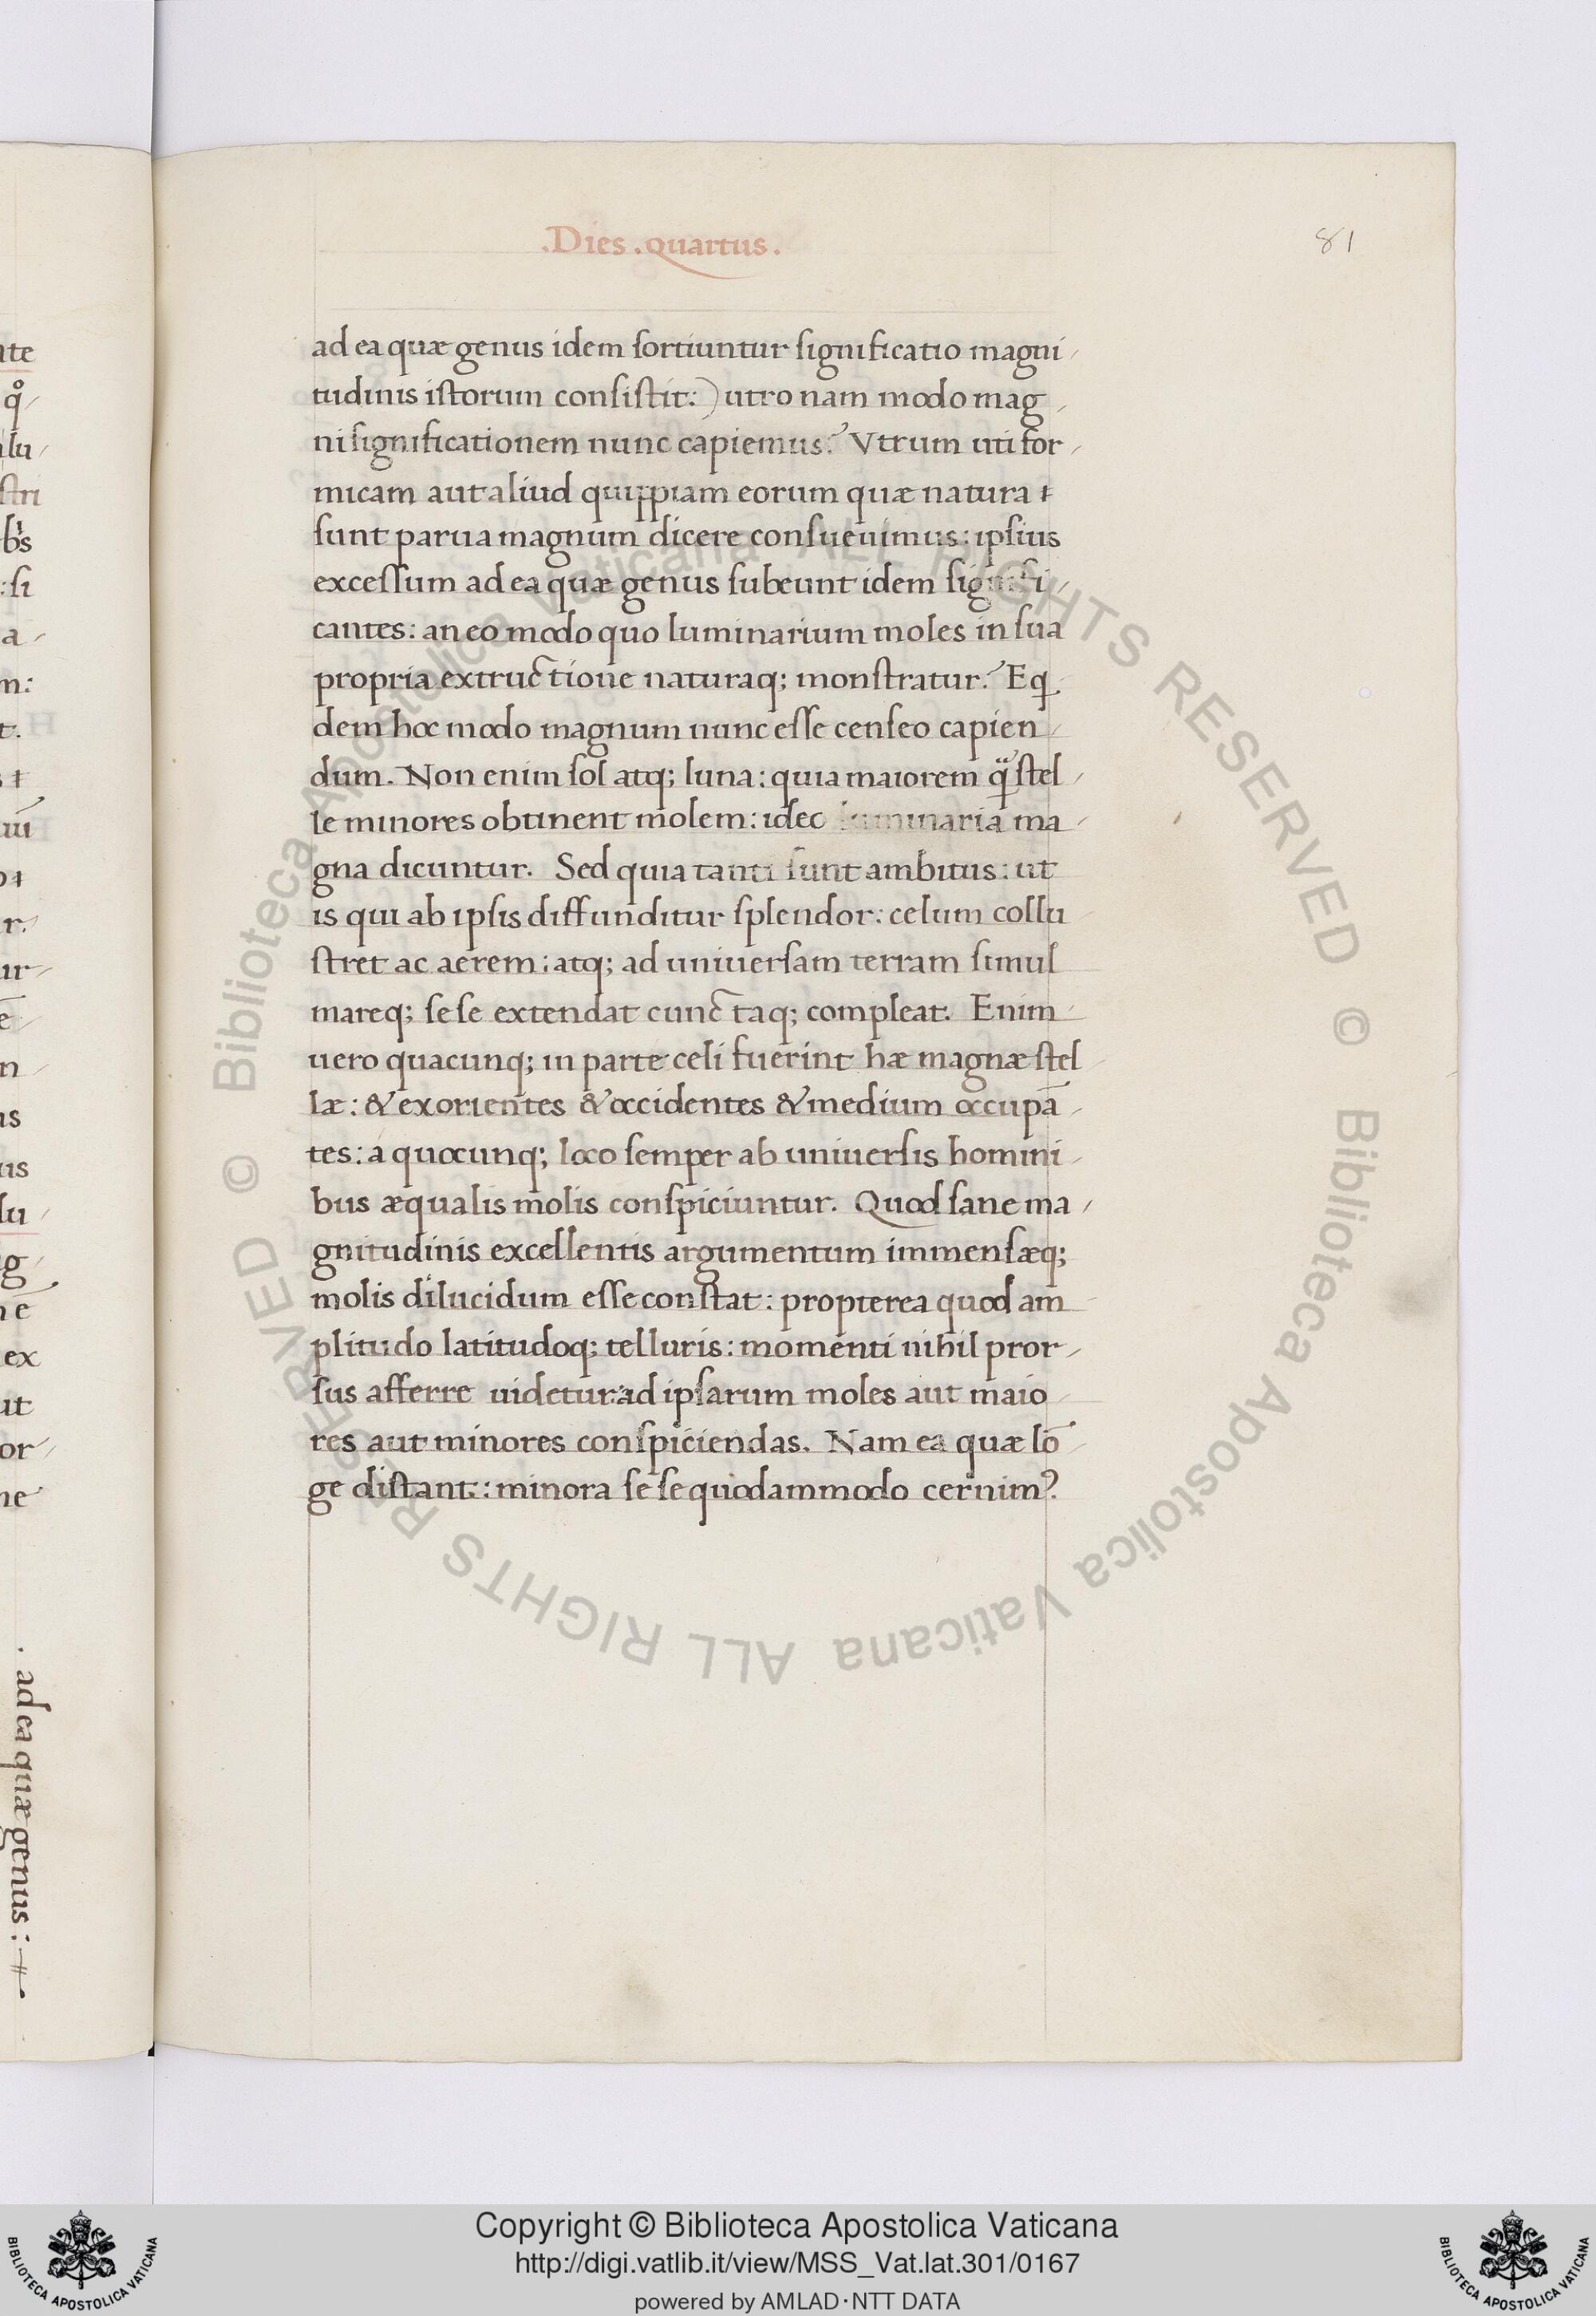 .Dies.quartus.
81
ad ea quæ genus idem sortiuntur significatio magni/
tudinis istorum consistit:) utro nam modo mag/
ni significationem nunc capiemus? Vtrum uti for/
micam aut aliud quippiam eorum quæ natura
sunt parua magnum dicere consueuimus: ipsius
excessum ad ea quæ genus subeunt idem signifi/
cantes: an eo modo quo luminarium moles in sua
propria extructione naturaq; monstratur? Eq
dem hoc modo magnum nunc esse censeo capien/
dum. Non enim sol atq; luna: quia maiorem q̈ stel/
le minores obtinent molem: ideo luminaria ma/
gna dicuntur. Sed quia tanti sunt ambitus: ut
is qui ab ipsis diffunditur splendor: celum collu
stret ac aerem: atq; ad uniuersam terram simul
mareq; se se extendat cunctaq; compleat. Enim
uero quacunq; in parte celi fuerint hæ magnæ stel
læ: & exorientes & occidentes & medium occupā/
tes: a quocunq; loco semper ab uniuersis homini/
bus æqualis molis conspiciuntur. Quod sane ma/
gnitudinis excellentis argumentum immensæq;
molis dilucidum esse constat: propterea quod am
plitudo latitudoq; telluris: momenti nihil pror/
sus afferre uidetur: ad ipsarum moles aut maio/
res aut minores conspiciendas. Nam ea quæ lō/
ge distant: minora se se quodammodo cernim?
ad ea quæ genus:
Copyright © Biblioteca Apostolica Vaticana
http://digi.vatlib.it/view/MSS_Vat.lat.301/0167
powered by AMLAD·NTT DATA
BIBLIOTECA APOSTOLICA VATICANA
BIBLIOTECA APOSTOLICA VATICANA
© Biblioteca Apostolica Vaticana ALL RIGHTS RESERVED
© Biblioteca Apostolica Vaticana ALL RIGHTS RESERVED